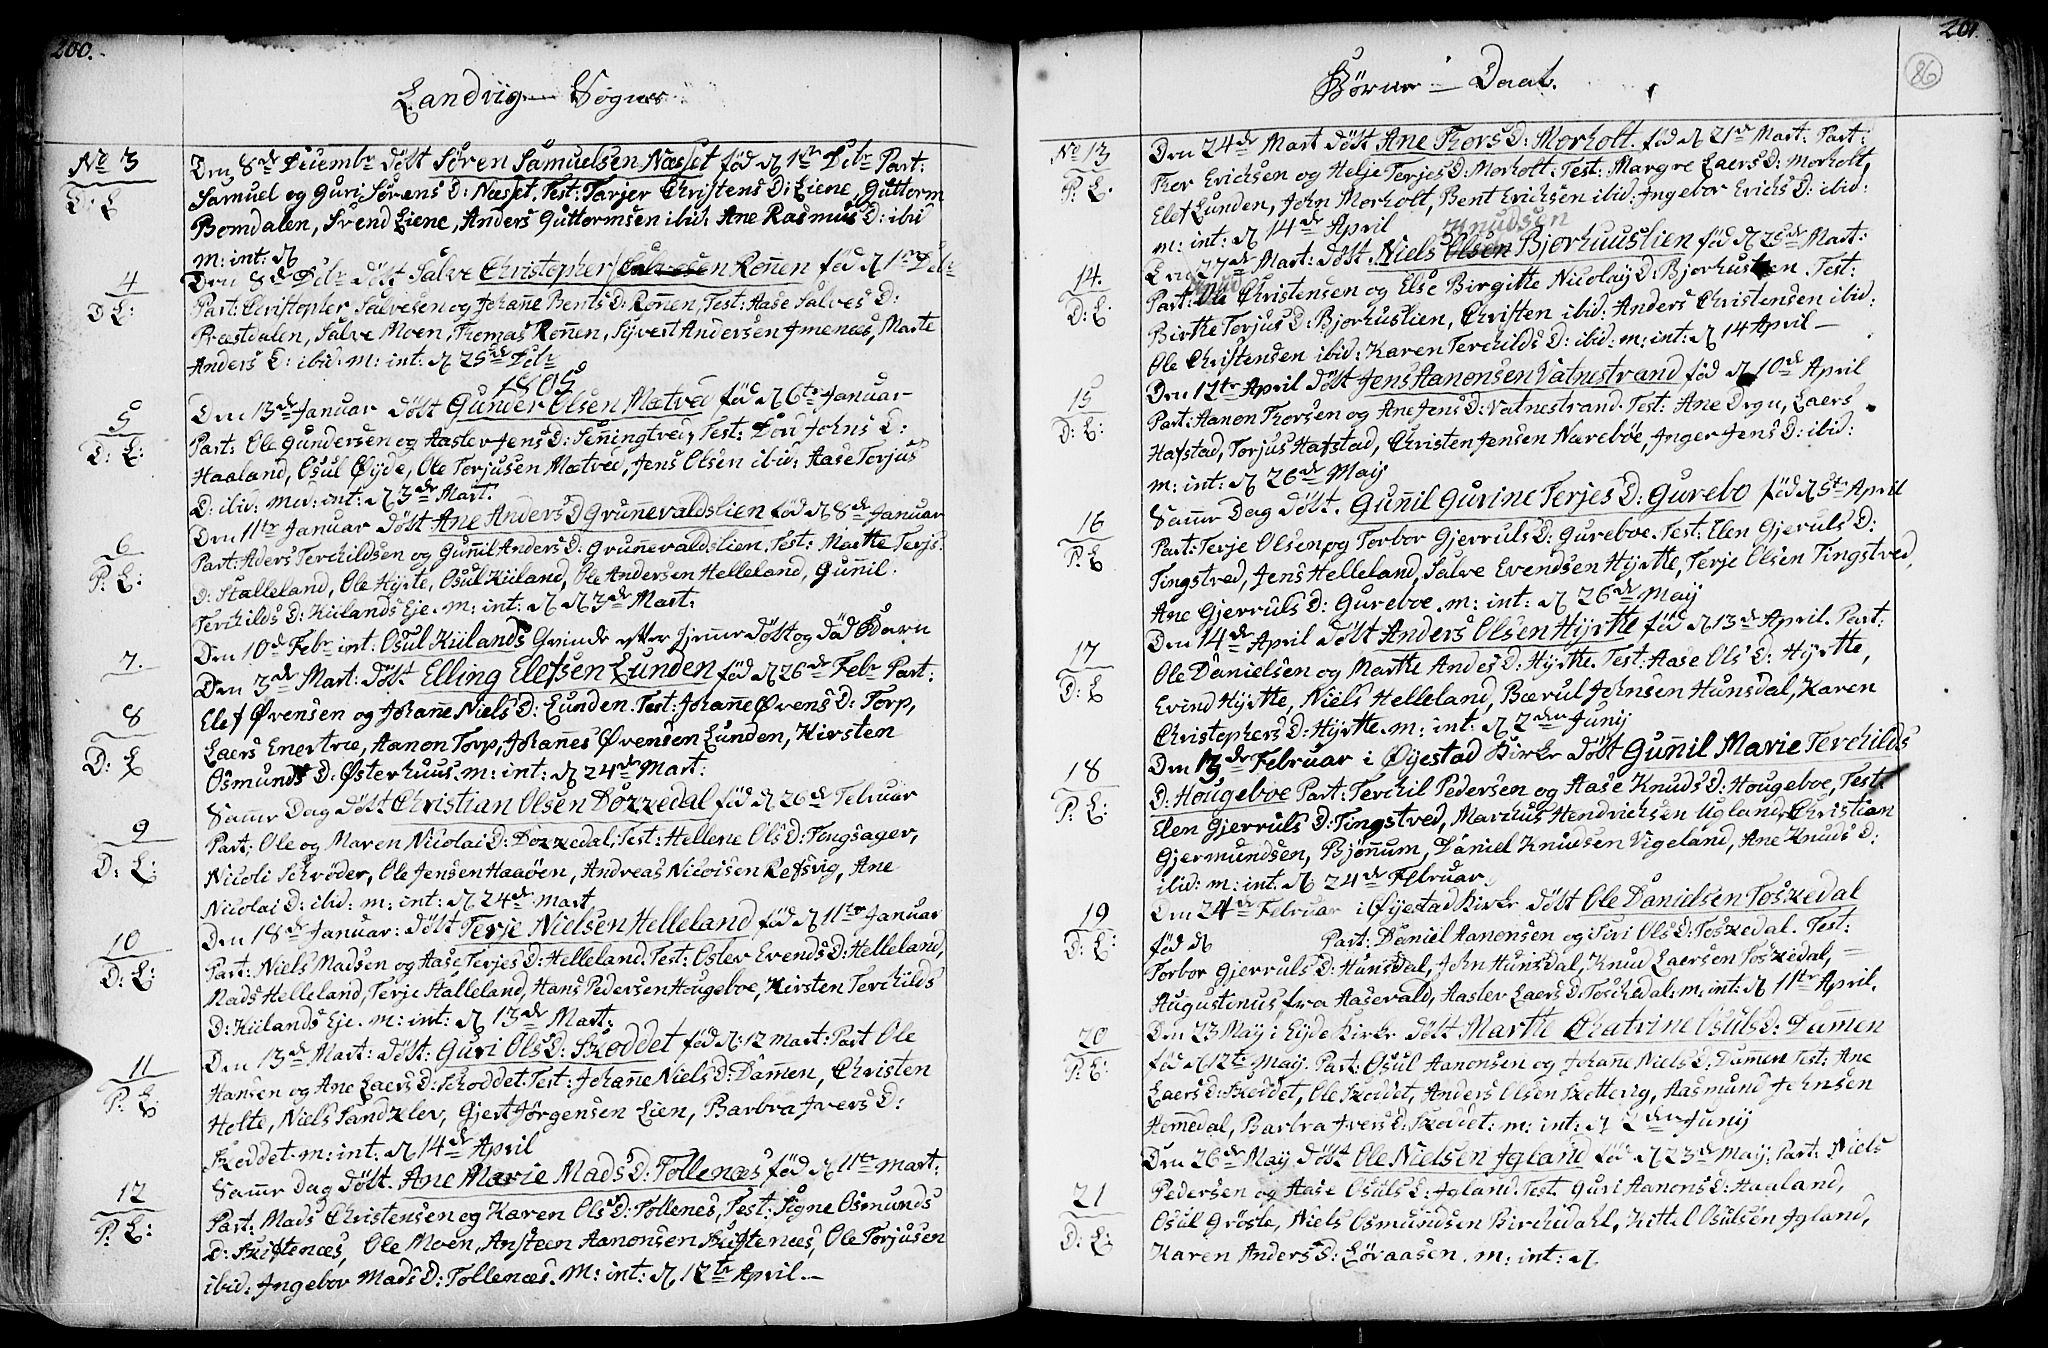 200.
Landvig Sogns
No 3
D: L
Den 8de Decembr döbt Sören Samuelsen Næsset föd d 1ste Dcbr Part:
Samuel og Guri Sörens D: Næset. Test: Tarjer Christens D: Liene, Guttorm
Bomdalen, Svend Liene, Anders Guttormsen ibid: Ane Rasmus D: ibid
m: int: d
4
D L:
Den 8de Dcbr döbt Salve Christopher Roñen föd d 1ste Dcbr
Part: Christopher Salvesen og Johañe Bents D: Roñen, Test: Aase Salves D:
Præstdalen, Salve Moen, Thomas Roñen, Syvert Andersen Imenæs, Marte
Anders D: ibid: m: int: d 25de Dcbr
1805
5
D: L:
Den 13de Januar döbt Gunder Olsen Mætved föd d 6te Januar
Part: Ole Gundersen og Aaster Jens D: Señingtved, Test: Dord Johns D:
Haaland, Osul Öyde, Ole Torjusen Mætved, Jens Olsen ibid: Aase Torjus
D: ibid: m: int: d 3de Mart.
6
P: L:
Den 11te Januar döbt Ane Anders D Gruñevaldslien föd d 8de Januar
Part: Aders Terchildsen og Guñil Anders D: Gruñevaldslien. Test: Marthe Terjs
D: Stalleland, Ole Hyrte, Osul Kiiland, Ole Andersen Helleland, Guñil
Terchilds D: Kiilands Eje. m: int: d d 3de Mart:
7.
Den 10de Febr int: Osul Kiilands Qvinde efter hjeme döbt og död Barn
8
D: L
Den 3de Mart: döbt Elling Elefsen Lunden föd d 26de Febr Part:
Elef Øvensen og Johañe Niels D: Lunden. Test: Johañe Øvens D: Torp,
Laers Enertræ, Aanon Torp, Johañes Øvensen Lunden, Kirsten
Osmunds D: Østerhuus. m: int: d 24de Mart:
9
D: L:
Same Dag döbt Christian Olsen Dozzedal föd d 26de Februar
Part: Ole og Maren Nicolai D: Dozzedal, Test: Hellene Ols D: Tongsager,
Nicoli Schröder, Ole Jensen Haaöen, Andreas Nicoisen Refsvig, Ane
Nicolai D: ibid: m: int: d 24de Mart
10
D: L:
Den 18de Januar: döbt Terje Nielsen Helleland föd d 11te Januar
Part: Niels Madsen og Aase Terjes D: Helleland. Test: Oslev Evends D: Helleland,
Mads Helleland, Terje Stalleland, Hans Pedersen Hougeboe, Kirsten Terchilds
D: Kiilands Eje. m: int: d 13de Mart:
11
P: L
Den 13de Mart: döbt: Guri Ols D: Skoddet föd d: 12 Mart: Part Ole
Hansen og Ane Laers D: Skoddet. Test: Johañe Niels D: Dañen, Christen
Holte, Niels Sandklev, Gjert Jörgensen Lien, Barbra Ivers D:
Skoddet. m: int: d 14de April
12
P: L:
Same Dag döbt. Ane Marie Mads D: Tollenæs föd d 11te Mart:
Part: Mads Christensen og Karen Ols D: Tollenes, Test: Signe Osmunds
D: Skiftenæs, Ole Moen, Ansteen Aanonsen Skiftenæs, Ole Torjusen
ibid: Ingebor Mads D: Tollenæs. m: int: d 12te April.
201.
86
Börne - Daab.
No 13
P: L.
Den 24de Mart döbt Ane Thors D: Morholt. föd d 21de Mart: Part:
Thor Erichsen og Helje Terjes D: Morholt. Test: Margre Laers D: Morholt,
Elef Lunden, John Morholt, Bent Erichsen ibid: Ingebor Erichs D: ibid:
m: int: d 14de April
14.
D: L.
Knudsen
Den 27de Mart: döbt Niels Olsen Bjorhuuslien föd d 25de Mart:
Knud
Part: Ole Christensen og Else Birgitte Nicolay D: Bjorhuslien. Test:
Birthe Torjus D: Bjorhuslien, Christen ibid: Anders Christensen ibid:
Ole Christensen ibid: Karen Terchilds D: ibid: m: int: d 14 April
15
D: L:
Den 12te April döbt Jens Aanonsen Vatnestrand föd d 10de April
Part: Aanon Thorsen og Ane Jens D: Vatnestrand. Test: Ane Degn, Laers
Hafstad, Torjus Hafstad, Christen Jensen Narebøe, Inger Jens D: ibid:
m: int: d 26de May
16
P: L
Same Dag döbt. Guñil Gurine Terjes D: Gurebo föd d 5te April
Part: Terje Olsen og Torbor Gjerruls D: Gureboe. Test: Elen Gjeruls D:
Tingstved, Jens Helleland, Salve Evendsen Hyrtte, Terje Olsen Tingstved,
Ane Gjerruls D: Gureboe. m: int: d 26de May
17
D: L
Den 14de April döbt Anders Olsen Hyrtte föd d 13de April. Part:
Ole Danielsen og Marthe Andes D: Hyrtte. Test: Aase Ols D: Hyrtte,
Evind Hyrtte, Niels Helleland, Bærul Johnsen Hunsdal, Karen
Christophers D: Hyrtte. m: int: d 2den Junij
18
P: L:
Den 13de Februar i Öyestad Kirke döbt Guñil Marie Terchilds
D: Hougeboe Part: Terchil Pedersen og Aase Knuds D: Hougeboe, Test:
Elen Gjerruls D: Tingstved, Marchus Hendrichsen Ugland, Christian
Gjermundsen, Bjöñum, Daniel Knudsen Vigeland, Ane Knuds D:
ibid: m: int: d 24de Februar
19
D: L:
Den 24de Februar i Öyestad Kirke döbt Ole Danielsen Toskedal
föd d Part: Daniel Aanonsen og Siri Ols D: Toskedal. Test:
Torbor Gjerruls D: Hunsdal, John Hunsdal, Knud Laersen Toskedal,
Augustenus fra Aasevald, Aaster Laers D: Toschedal: m: int: d 11te April.
20
P: L:
Den 23 May i Eyde Kirke döbt Marthe Chatrine Osuls D: Dañen
föd d 12te May. Part: Osul Aanonsen og Johañe Niels D: Dañen Test: Ane
Laers D: Skoddet, Ole Skoddet, Anders Olsen Skottevig, Aasmund Johnsen
Hemedal, Barbra Ivers D: Skoddet: m: int: d 2den Junij
21
D: L:
Den 26de May döbt Ole Nielsen Igland föd d 23de May: Part: Niels
Pedersen og Aase Osuls D: Igland. Test. Guri Aanons D: Haaland,
Osul Gröste, Niels Osmundsen Birchedahl, Kittel Osulsen Igland,
Karen Anders D: Löraasen. m: int: d